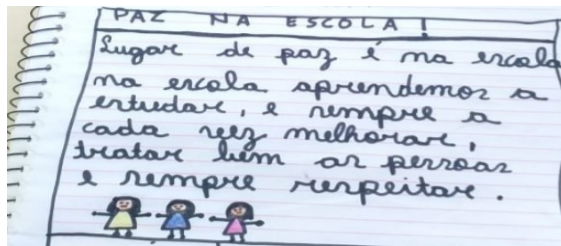 PAZ NA ESCOLA!
Lugar de paz é na escola
na escola aprendemos a
estudar, e sempre a
cada vez melhorar,
tratar bem as pessoas
e sempre respeitar.